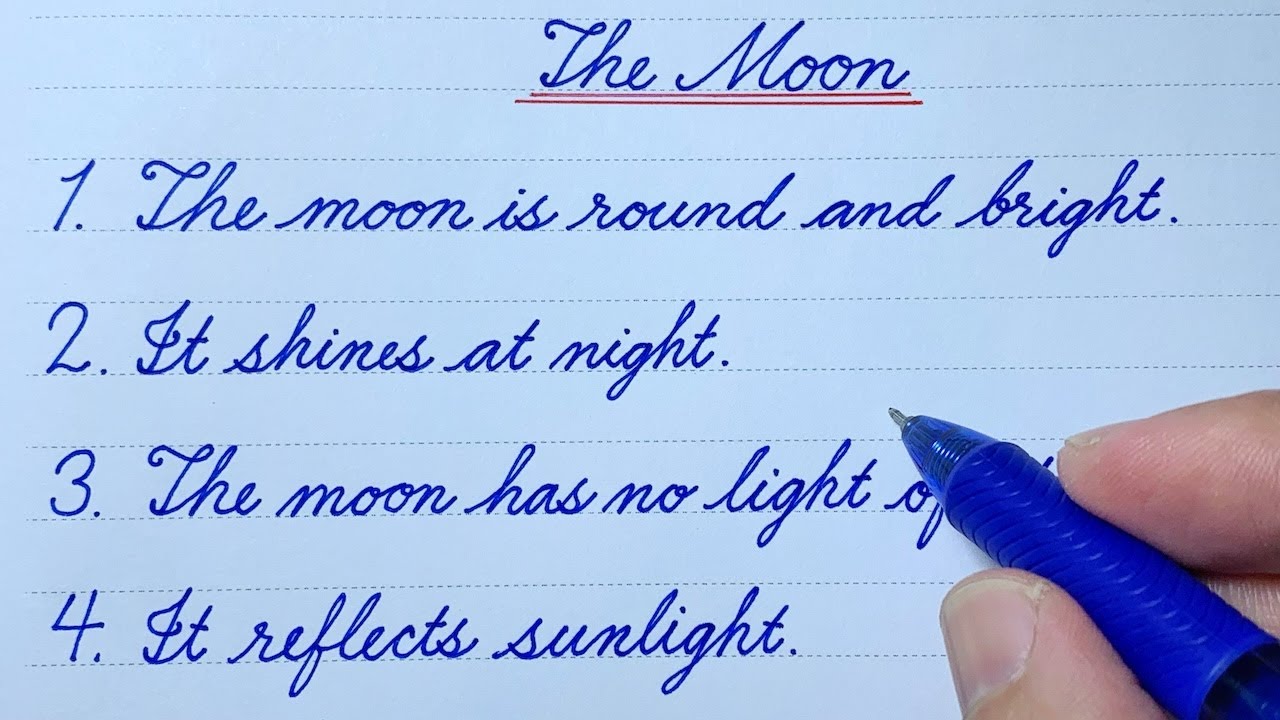 The Moon
1. The moon is round and bright.
2. It shines at night.
3. The moon has no light of
4. It reflects sunlight.